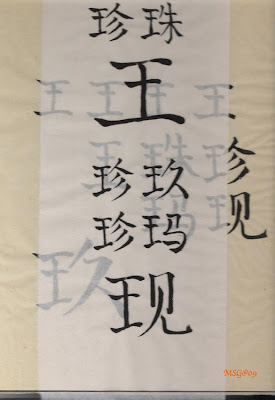 珍珠
王
王王王王
王珠珍
珍玖
珍玛
玛现
玖
现
MSG@09